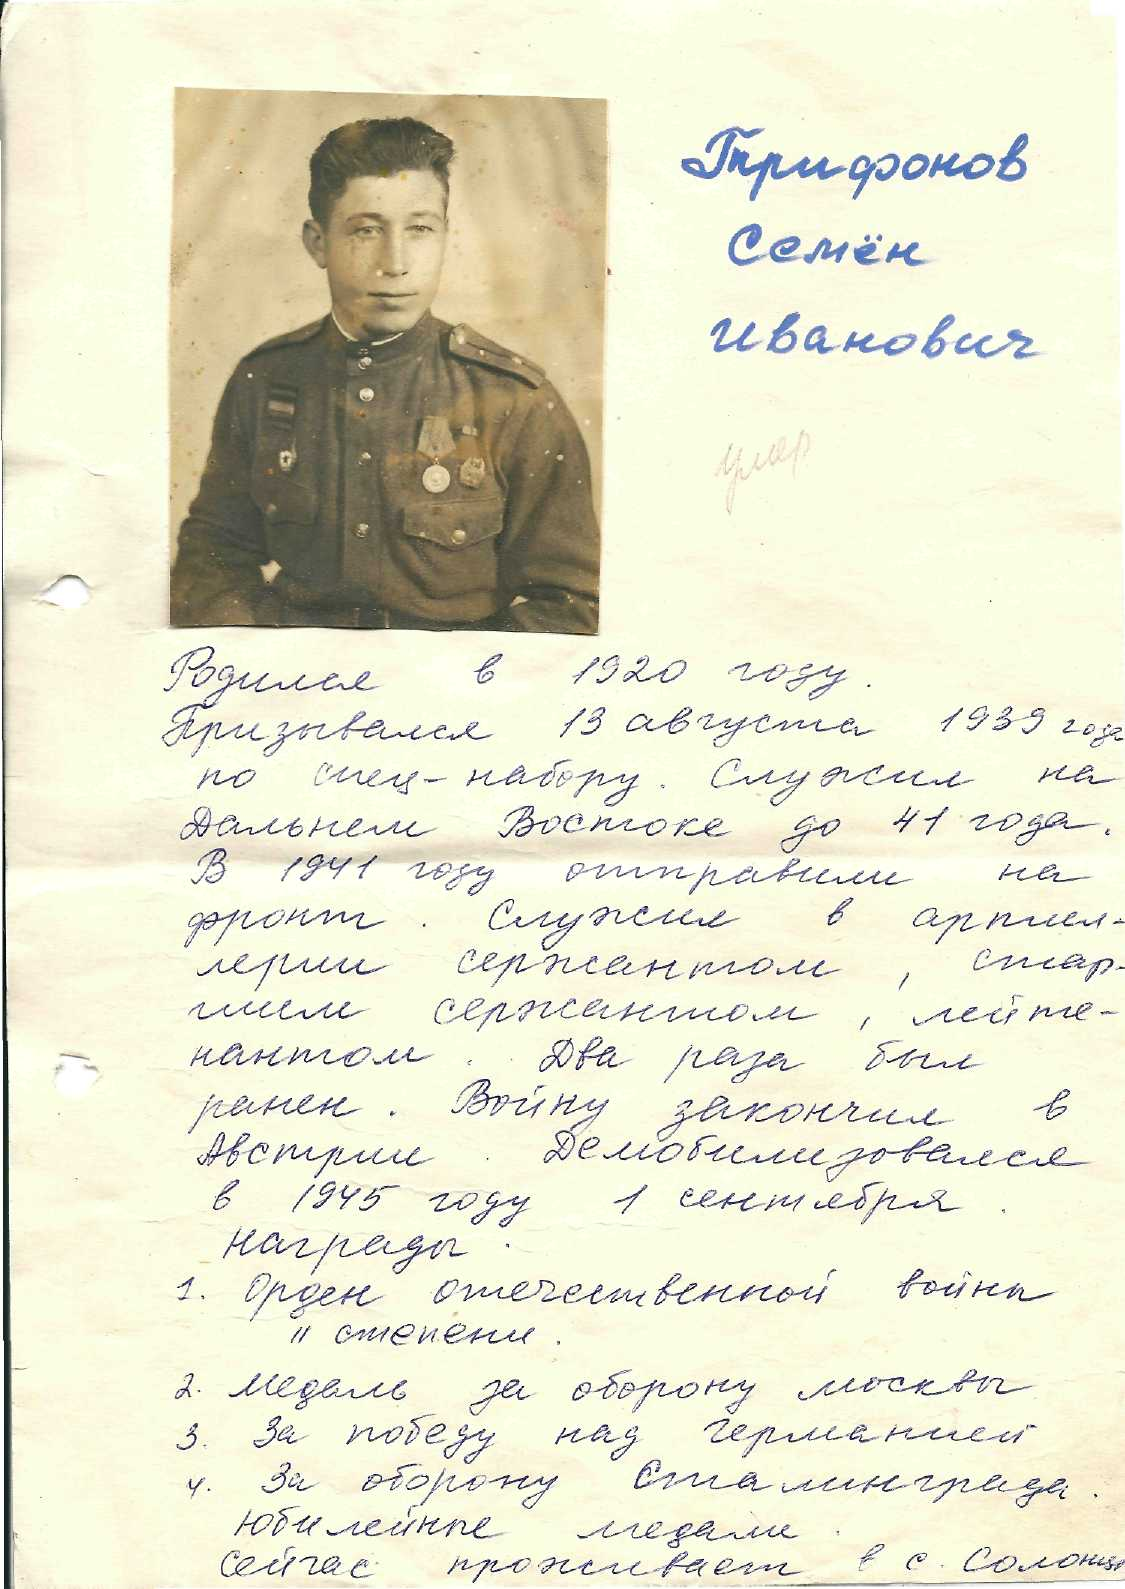 Трифонов
Семён
Иванович
умер
Родился в 1920 году.
Призывался 13 августа 1939 года
по спец-набору. Служил на
Дальнем Востоке до 41 года.
В 1941 году отправили на
фронт. Служил в артил-
лерии сержантом, стар-
шим сержантом, лейте-
нантом. Два раза был
ранен. Войну закончил в
Австрии. Демобилизовался
в 1945 году 1 сентября.
Награды.
1. Орден отечественной войны
II степени.
2. Медаль за оборону Москвы
3. За победу над Германией
4. За оборону Сталинграда.
Юбилейные медали.
Сейчас проживает в с. Солонцы